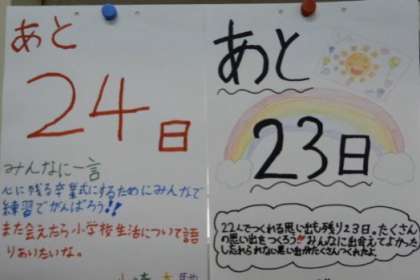 あと
24日
みんなに一言
心に残る卒業式にするためにみんなで
練習でがんばろう!!
また会えたら小学校生活について語
りあいたいな。
あと
23日
22人でつくれる思い出も残り23日。たくさん
の思い出をつくろう!!みんなに出会えてよかった
し忘れられない思い出がたくさんつくれたよ。